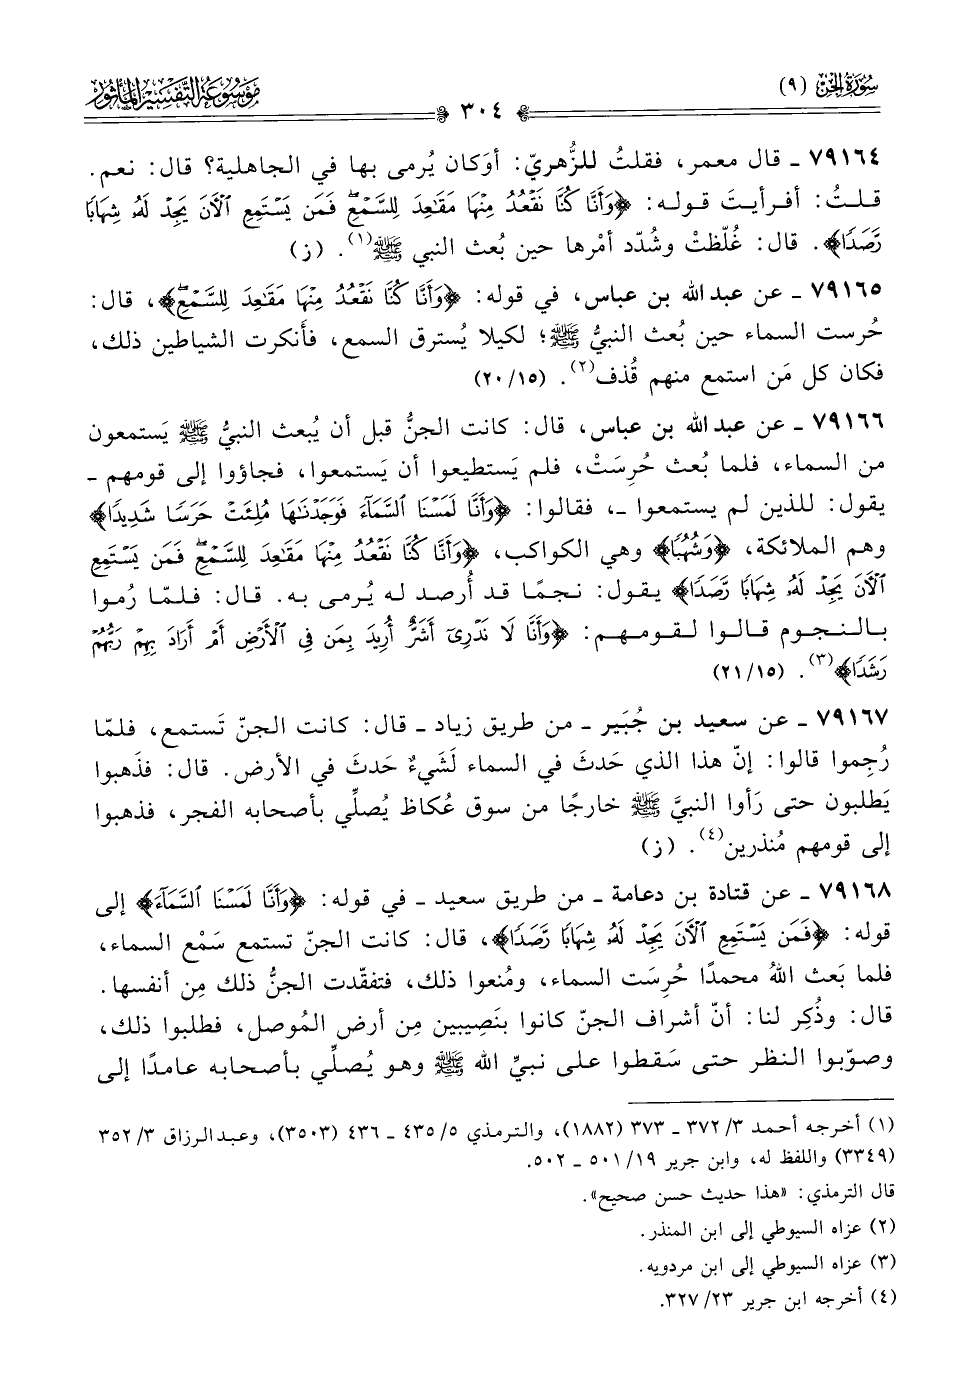 سُورَةُ الجِنّ (٩)
٣٠٤
مَوْسُوعَةُ التَّفْسِيْرِ المَأْثُورِ
٧٩١٦٤ ـ قال معمر، فقلتُ للزُّهريّ: أوَكان يُرمى بها في الجاهلية؟ قال: نعم.
قلتُ: أفرأيتَ قوله: ﴿وَأَنَّا كُنَّا نَقْعُدُ مِنْهَا مَقَٰعِدَ لِلسَّمْعِۖ فَمَن يَسْتَمِعِ ٱلْآنَ يَجِدْ لَهُۥ شِهَابًا
رَّصَدًا﴾. قال: غُلّظتْ وشُدّد أمْرها حين بُعث النبي ﷺ(١). (ز)
٧٩١٦٥ ـ عن عبد الله بن عباس، في قوله: ﴿وَأَنَّا كُنَّا نَقْعُدُ مِنْهَا مَقَٰعِدَ لِلسَّمْعِۖ﴾، قال:
حُرست السماء حين بُعث النبيُّ ﷺ؛ لكيلا يُسترق السمع، فأنكرت الشياطين ذلك،
فكان كل مَن استمع منهم قُذف(٢). (٢٠/١٥)
٧٩١٦٦ ـ عن عبد الله بن عباس، قال: كانت الجنُّ قبل أن يُبعث النبيُّ ﷺ يَستمعون
من السماء، فلما بُعث حُرِسَتْ، فلم يَستطيعوا أن يَستمعوا، فجاؤوا إلى قومهم ـ
يقول: للذين لم يستمعوا ـ، فقالوا: ﴿وَأَنَّا لَمَسْنَا ٱلسَّمَآءَ فَوَجَدْنَٰهَا مُلِئَتْ حَرَسًا شَدِيدًا﴾
وهم الملائكة، ﴿وَشُهُبًا﴾ وهي الكواكب، ﴿وَأَنَّا كُنَّا نَقْعُدُ مِنْهَا مَقَٰعِدَ لِلسَّمْعِۖ فَمَن يَسْتَمِعِ
ٱلْآنَ يَجِدْ لَهُۥ شِهَابًا رَّصَدًا﴾ يقول: نجمًا قد أُرصد له يُرمى به. قال: فلمّا رُموا
بالنجوم قالوا لقومهم: ﴿وَأَنَّا لَا نَدْرِىٓ أَشَرٌّ أُرِيدَ بِمَن فِى ٱلْأَرْضِ أَمْ أَرَادَ بِهِمْ رَبُّهُمْ
رَشَدًا﴾(٣). (٢١/١٥)
٧٩١٦٧ ـ عن سعيد بن جُبَير ـ من طريق زياد ـ قال: كانت الجنّ تَستمع، فلمّا
رُجِموا قالوا: إنّ هذا الذي حَدثَ في السماء لَشَيءٌ حَدثَ في الأرض. قال: فذَهبوا
يَطلبون حتى رَأوا النبيَّ ﷺ خارجًا من سوق عُكاظ يُصلِّي بأصحابه الفجر، فذهبوا
إلى قومهم مُنذرين(٤). (ز)
٧٩١٦٨ ـ عن قتادة بن دعامة ـ من طريق سعيد ـ في قوله: ﴿وَأَنَّا لَمَسْنَا ٱلسَّمَآءَ﴾ إلى
قوله: ﴿فَمَن يَسْتَمِعِ ٱلْآنَ يَجِدْ لَهُۥ شِهَابًا رَّصَدًا﴾، قال: كانت الجنّ تستمع سَمْع السماء،
فلما بَعث اللهُ محمدًا حُرِسَت السماء، ومُنعوا ذلك، فتفقّدت الجنُّ ذلك مِن أنفسها.
قال: وذُكِر لنا: أنّ أشراف الجنّ كانوا بنَصِيبين مِن أرض المُوصل، فطلبوا ذلك،
وصوّبوا النظر حتى سَقطوا على نبيِّ الله ﷺ وهو يُصلِّي بأصحابه عامدًا إلى
(١) أخرجه أحمد ٣/ ٣٧٢ ـ ٣٧٣ (١٨٨٢)، والترمذي ٥/ ٤٣٥ ـ ٤٣٦ (٣٥٠٣)، وعبد الرزاق ٣/ ٣٥٢
(٣٣٤٩) واللفظ له، وابن جرير ١٩/ ٥٠١ ـ ٥٠٢.
قال الترمذي: «هذا حديث حسن صحيح».
(٢) عزاه السيوطي إلى ابن المنذر.
(٣) عزاه السيوطي إلى ابن مردويه.
(٤) أخرجه ابن جرير ٢٣/ ٣٢٧.